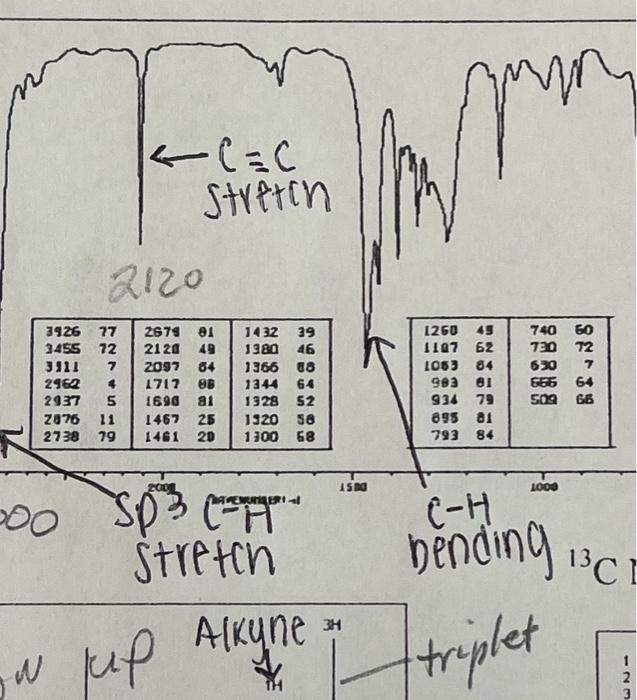 C≡C
stretch
2120
3926 77 2679 81 1432 39
3455 72 2120 49 1380 46
3311 7 2097 64 1366 68
2962 4 1717 86 1344 64
2937 5 1690 81 1328 52
2876 11 1467 25 1320 58
2738 79 1461 20 1300 68
1260 49 740 60
1107 62 730 72
1063 84 630 7
983 81 666 64
934 79 509 66
895 81
793 84
2000 1500 1000
000
sp3 C-H
stretch
C-H
bending
13C
Alkyne
3H
triplet
up
1H
1
2
3